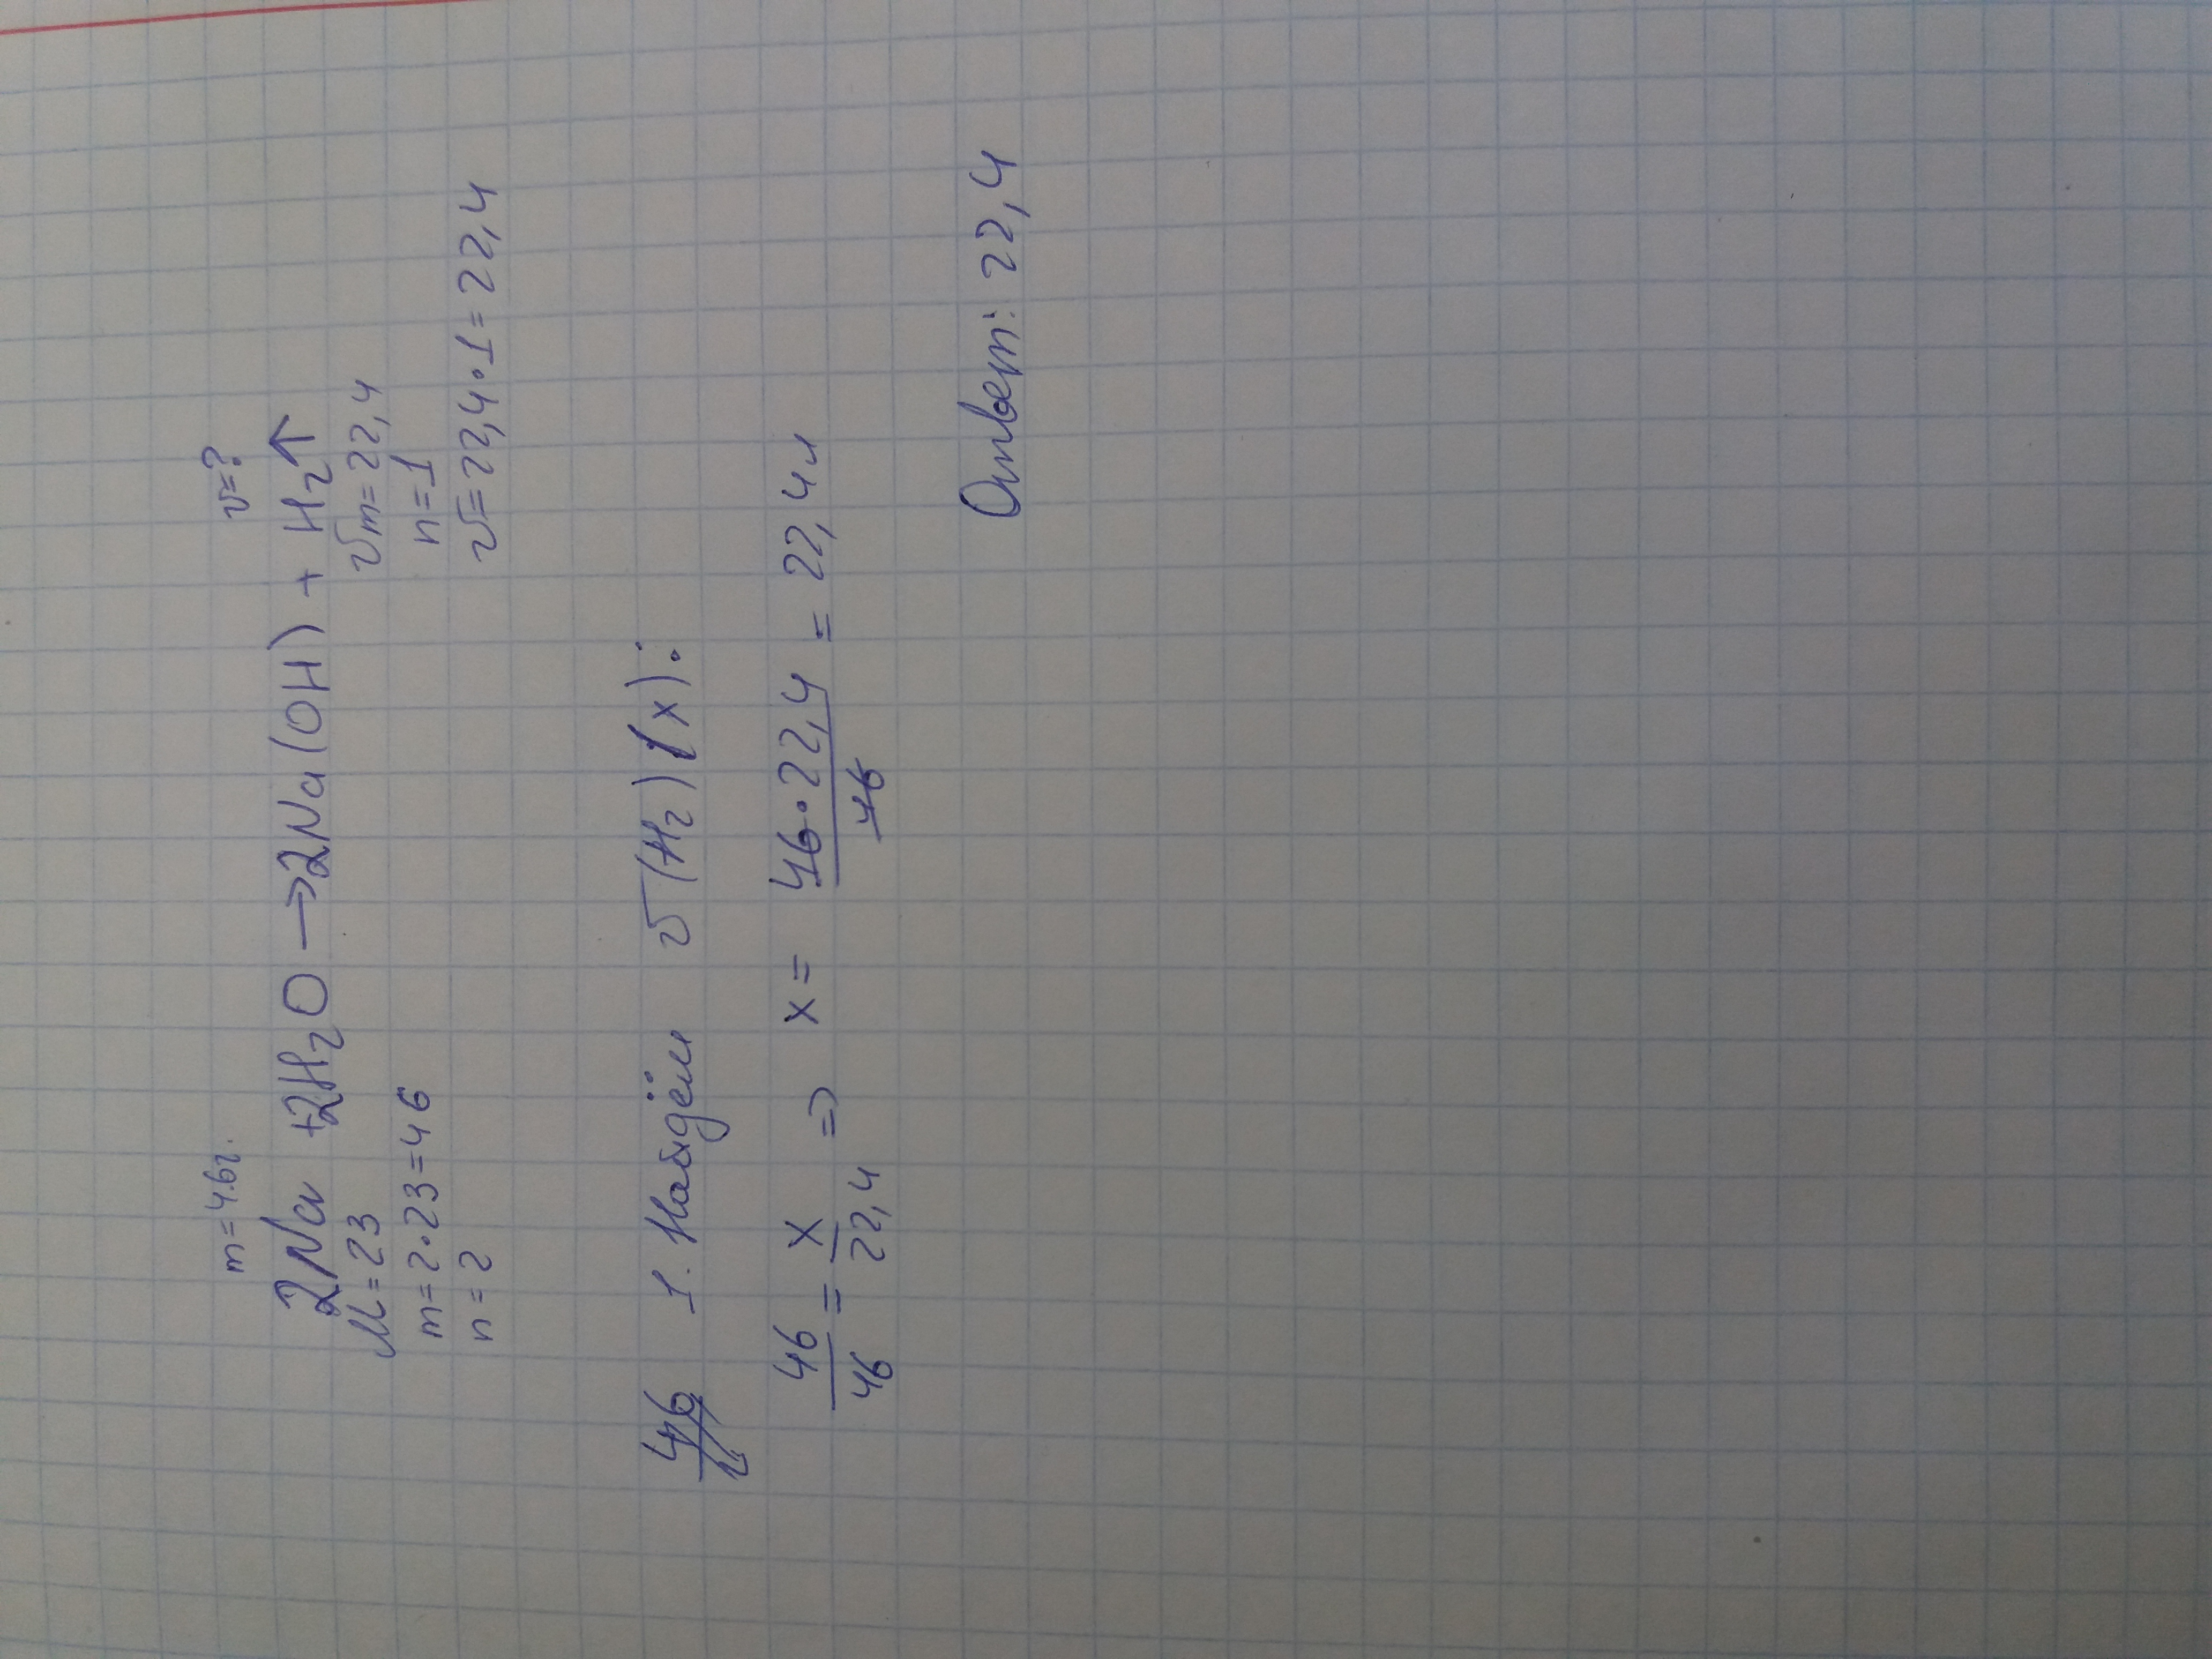 m=46г. v=?
2Na +2H₂O →2Na(OH) + H₂↑
M=23 Vm=22,4
m=2·23=46 n=1
n=2 v=22,4·1=22,4
1. Найдём V(H₂)(x):
46/46 = x/22,4 => x = 46·22,4/46 = 22,4л
Ответ: 22,4